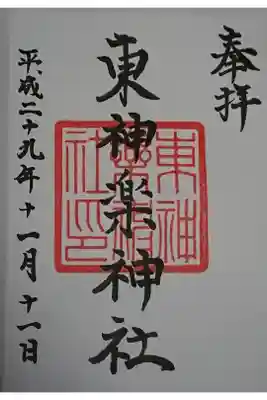 奉拝
東神楽神社
東神
楽神
社印
平成二十九年十一月十一日